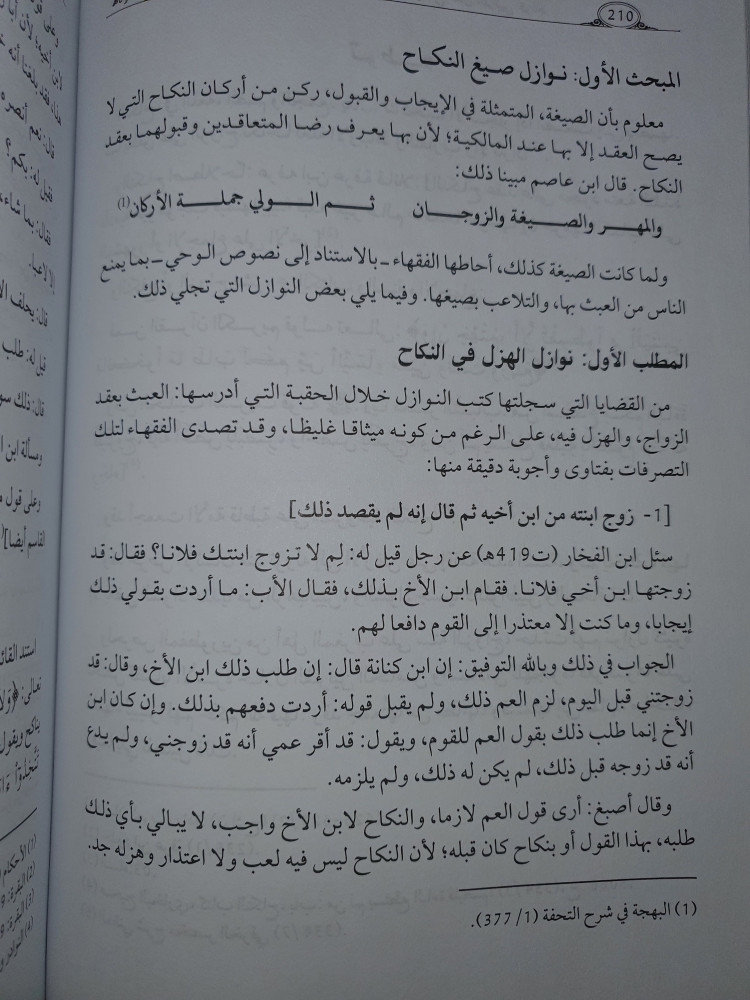 210
المبحث الأول: نوازل صيغ النكاح
معلوم بأن الصيغة، المتمثلة في الإيجاب والقبول، ركن من أركان النكاح التي لا
يصح العقد إلا بها عند المالكية؛ لأن بها يعرف رضا المتعاقدين وقبولهما بعقد
النكاح. قال ابن عاصم مبينا ذلك:
والمهر والصيغة والزوجان ثم الولي جملة الأركان(1)
ولما كانت الصيغة كذلك، أحاطها الفقهاء - بالاستناد إلى نصوص الوحي - بما يمنع
الناس من العبث بها، والتلاعب بصيغها. وفيما يلي بعض النوازل التي تجلي ذلك.
المطلب الأول: نوازل الهزل في النكاح
من القضايا التي سجلتها كتب النوازل خلال الحقبة التي أدرسها: العبث بعقد
الزواج، والهزل فيه، على الرغم من كونه ميثاقا غليظا، وقد تصدى الفقهاء لتلك
التصرفات بفتاوى وأجوبة دقيقة منها:
[1- زوج ابنته من ابن أخيه ثم قال إنه لم يقصد ذلك]
سئل ابن الفخار (ت419هـ) عن رجل قيل له: لِم لا تزوج ابنتك فلانا؟ فقال: قد
زوجتها ابن أخي فلانا. فقام ابن الأخ بذلك، فقال الأب: ما أردت بقولي ذلك
إيجابا، وما كنت إلا معتذرا إلى القوم دافعا لهم.
الجواب في ذلك وبالله التوفيق: إن ابن كنانة قال: إن طلب ذلك ابن الأخ، وقال: قد
زوجتني قبل اليوم، لزم العم ذلك، ولم يقبل قوله: أردت دفعهم بذلك. وإن كان ابن
الأخ إنما طلب ذلك بقول العم للقوم، ويقول: قد أقر عمي أنه قد زوجني، ولم يدع
أنه قد زوجه قبل ذلك، لم يكن له ذلك، ولم يلزمه.
وقال أصبغ: أرى قول العم لازما، والنكاح لابن الأخ واجب، لا يبالي بأي ذلك
طلبه، بهذا القول أو بنكاح كان قبله؛ لأن النكاح ليس فيه لعب ولا اعتذار وهزله جد.
(1) البهجة في شرح التحفة (1/ 377).
قال: نعم أنصره
فقيل له: بكم؟
فقال: بما شاء،
إلا لاعبا.
قال: يحلف
قيل له: طلب
قال: ذلك
ومسألة ابن
وعلى قول
القاسم أيضا]
استند
تعالى:
ويقول
(1) الأحكام
(2) البقرة:
(3) البقرة:
(4) النوادر